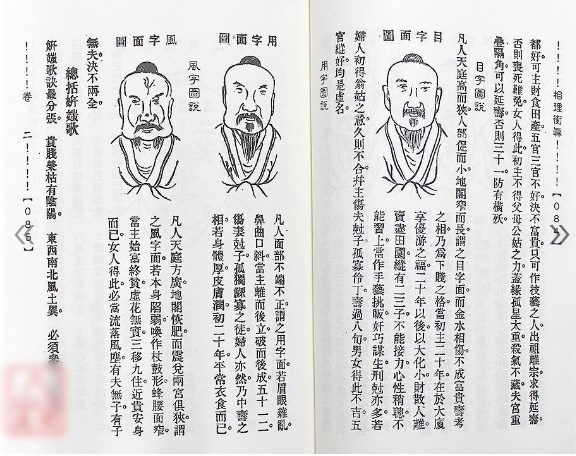 相理衡眞
都好可主財食田產五官三官不好決不富貴只可作技藝之人出祖離宗求得延壽
否則喪死難免女人得此初主不得父母公姑之力蓋緣孤星太重殺氣不藏夫宮重
疊隔角可以延壽否則三十一防有儀殀
目字面圖
目字圖說
凡人天庭高而狹人部促而小地閣窄而長謂之目字面而金水相傷不成富貴壽考
之相乃爲下賤之格當初主二十年在於大廈
享優游之福二十年以後以大化小財散人離
賣盡田園縱有二三子不能接力心性稍聰不
能習上當作手藝挑販奸巧謀生刑尅亦多若
婦人初得翁姑之意久則不合幷主傷夫尅子孤寡伶丁壽過八旬男女得此不吉五
官縱好均是虛名
用字圖說
用字面圖
凡人面部不端不正謂之用字面若眉眼雜亂
鼻曲口斜當主離而後立破而後成五十一二
傷妻尅子孤獨鰥寡之徒婦人亦然乃中壽之
相若身體厚皮膚潤初二十年平常衣食而已
風字圖說
風字面圖
凡人天庭方廣地閣恢肥而震兌兩宮俱狹謂
之風字面若本身陷弱喚作枝鼓形蜂腰面窄
當主始富終貧虛花無實三移九住近貴安身
而已女人得此必當流落風塵有夫無子有子
無夫決不兩全
總括妍媸歌
妍媸歌訣最分張 貴賤榮枯有陰陽 東西南北風土異 必須
卷 二